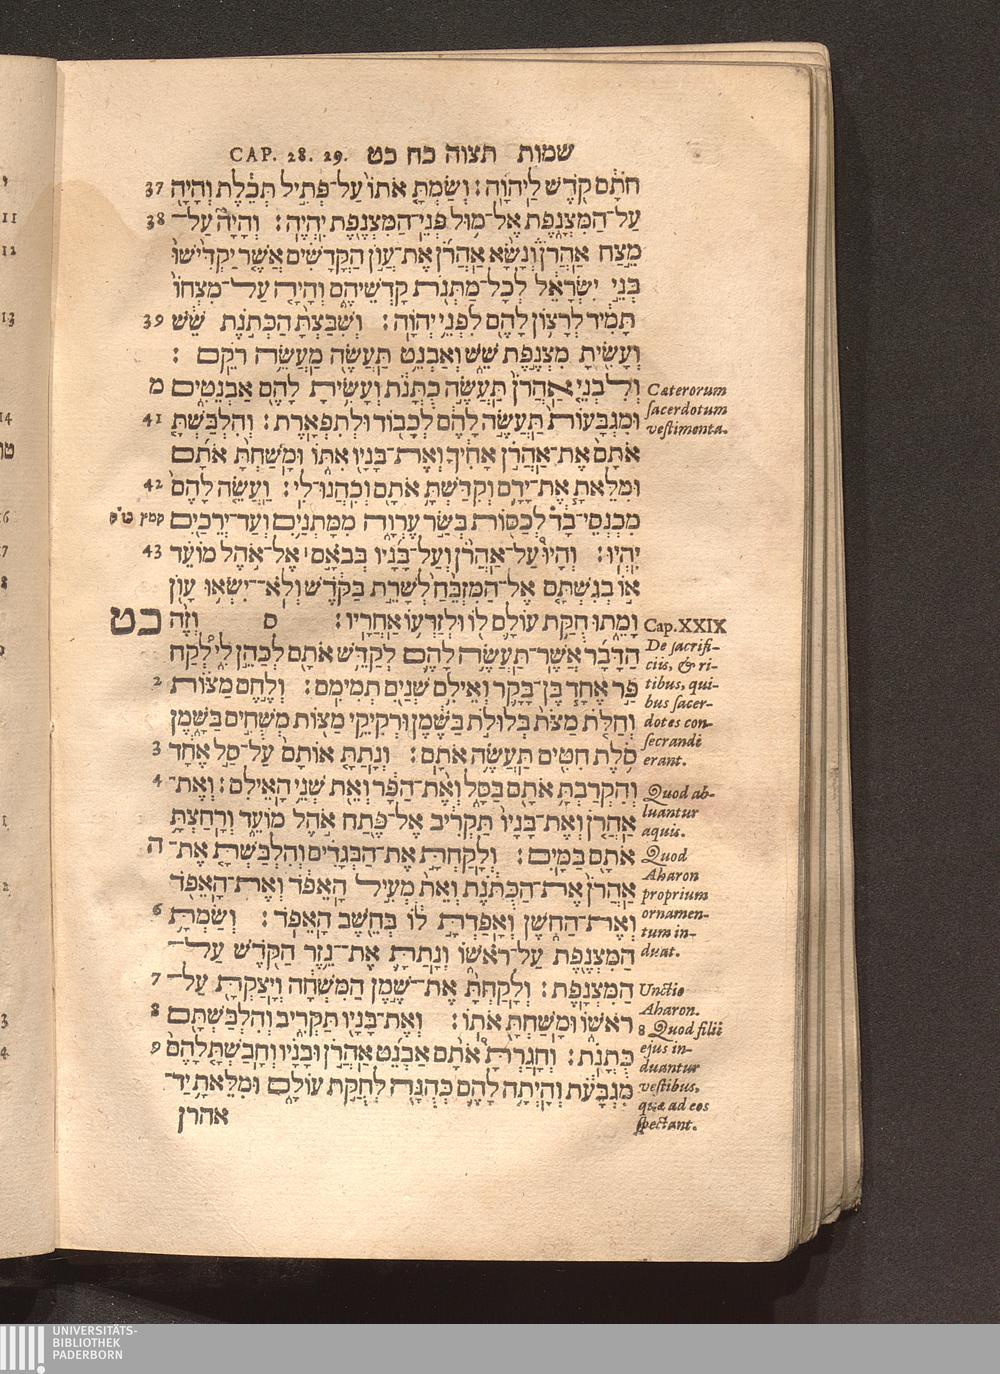 שמות תצוה כח כט CAP. 28. 29.
חֹתָם קֹדֶשׁ לַיהוָה׃ וְשַׂמְתָּ אֹתוֹ עַל־פְּתִיל תְּכֵלֶת וְהָיָה 37
עַל־הַמִּצְנָפֶת אֶל־מוּל פְּנֵי־הַמִּצְנֶפֶת יִהְיֶה׃ וְהָיָה עַל־ 38
מֵצַח אַהֲרֹן וְנָשָׂא אַהֲרֹן אֶת־עֲוֹן הַקֳּדָשִׁים אֲשֶׁר יַקְדִּישׁוּ
בְּנֵי יִשְׂרָאֵל לְכָל־מַתְּנֹת קָדְשֵׁיהֶם וְהָיָה עַל־מִצְחוֹ
תָּמִיד לְרָצוֹן לָהֶם לִפְנֵי יְהוָה׃ וְשִׁבַּצְתָּ הַכְּתֹנֶת שֵׁשׁ 39
וְעָשִׂיתָ מִצְנֶפֶת שֵׁשׁ וְאַבְנֵט תַּעֲשֶׂה מַעֲשֵׂה רֹקֵם׃
וְלִבְנֵי אַהֲרֹן תַּעֲשֶׂה כֻתֳּנֹת וְעָשִׂיתָ לָהֶם אַבְנֵטִים מ
וּמִגְבָּעוֹת תַּעֲשֶׂה לָהֶם לְכָבוֹד וּלְתִפְאָרֶת׃ וְהִלְבַּשְׁתָּ 41
אֹתָם אֶת־אַהֲרֹן אָחִיךָ וְאֶת־בָּנָיו אִתּוֹ וּמָשַׁחְתָּ אֹתָם
וּמִלֵּאתָ אֶת־יָדָם וְקִדַּשְׁתָּ אֹתָם וְכִהֲנוּ־לִי׃ וַעֲשֵׂה לָהֶם 42
מִכְנְסֵי־בָד לְכַסּוֹת בְּשַׂר עֶרְוָה מִמָּתְנַיִם וְעַד־יְרֵכַיִם
יִהְיוּ׃ וְהָיוּ עַל־אַהֲרֹן וְעַל־בָּנָיו בְּבֹאָם אֶל־אֹהֶל מוֹעֵד 43
אוֹ בְגִשְׁתָּם אֶל־הַמִּזְבֵּחַ לְשָׁרֵת בַּקֹּדֶשׁ וְלֹא־יִשְׂאוּ עָוֹן
וָמֵתוּ חֻקַּת עוֹלָם לוֹ וּלְזַרְעוֹ אַחֲרָיו׃ ס וְזֶה כט
הַדָּבָר אֲשֶׁר־תַּעֲשֶׂה לָהֶם לְקַדֵּשׁ אֹתָם לְכַהֵן לִי לְקַח
פַּר אֶחָד בֶּן־בָּקָר וְאֵילִם שְׁנַיִם תְּמִימִם׃ וְלֶחֶם מַצּוֹת 2
וְחַלֹּת מַצֹּת בְּלוּלֹת בַּשֶּׁמֶן וּרְקִיקֵי מַצּוֹת מְשֻׁחִים בַּשָּׁמֶן
סֹלֶת חִטִּים תַּעֲשֶׂה אֹתָם׃ וְנָתַתָּ אוֹתָם עַל־סַל אֶחָד 3
וְהִקְרַבְתָּ אֹתָם בַּסָּל וְאֶת־הַפָּר וְאֵת שְׁנֵי הָאֵילִם׃ וְאֶת־ 4
אַהֲרֹן וְאֶת־בָּנָיו תַּקְרִיב אֶל־פֶּתַח אֹהֶל מוֹעֵד וְרָחַצְתָּ
אֹתָם בַּמָּיִם׃ וְלָקַחְתָּ אֶת־הַבְּגָדִים וְהִלְבַּשְׁתָּ אֶת־ ה
אַהֲרֹן אֶת־הַכֻּתֹּנֶת וְאֵת מְעִיל הָאֵפֹד וְאֶת־הָאֵפֹד
וְאֶת־הַחֹשֶׁן וְאָפַדְתָּ לוֹ בְּחֵשֶׁב הָאֵפֹד׃ וְשַׂמְתָּ 6
הַמִּצְנֶפֶת עַל־רֹאשׁוֹ וְנָתַתָּ אֶת־נֵזֶר הַקֹּדֶשׁ עַל־
הַמִּצְנָפֶת׃ וְלָקַחְתָּ אֶת־שֶׁמֶן הַמִּשְׁחָה וְיָצַקְתָּ עַל־ 7
רֹאשׁוֹ וּמָשַׁחְתָּ אֹתוֹ׃ וְאֶת־בָּנָיו תַּקְרִיב וְהִלְבַּשְׁתָּם 8
כֻּתֳּנֹת׃ וְחָגַרְתָּ אֹתָם אַבְנֵט אַהֲרֹן וּבָנָיו וְחָבַשְׁתָּ לָהֶם 9
מִגְבָּעֹת וְהָיְתָה לָהֶם כְּהֻנָּה לְחֻקַּת עוֹלָם וּמִלֵּאתָ יַד־
אהרן
Cæterorum
sacerdotum
vestimenta.
Cap. XXIX
De sacrifi-
ciis, & ri-
tibus, qui-
bus sacer-
dotes con-
secrandi
erant.
Quod ab-
luantur
aquis.
Quod
Aharon
proprium
ornamen-
tum in-
duat.
Unctio
Aharon.
8 Quod filii
ejus in-
duantur
vestibus,
quæ ad eos
spectant.
11
12
13
14
טו
16
17
1
2
3
4
UNIVERSITÄTS-
BIBLIOTHEK
PADERBORN